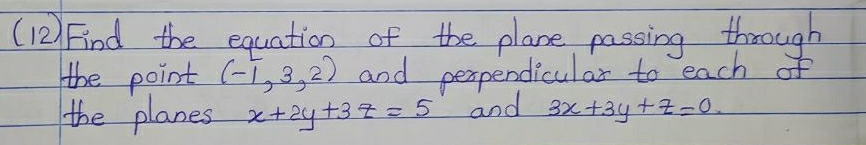 (12) Find the equation of the plane passing through
the point (-1, 3, 2) and perpendicular to each of
the planes x+2y+3z = 5 and 3x+3y+z=0.